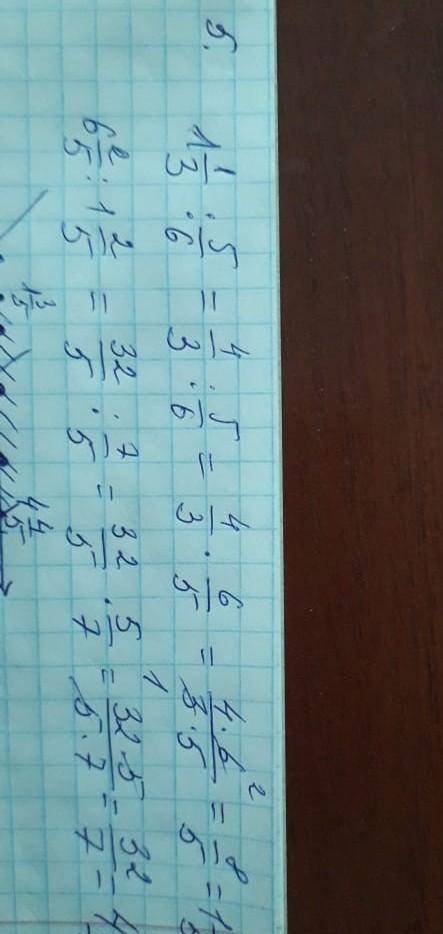 5.
1 1/3 : 5/6 = 4/3 : 5/6 = 4/3 · 6/5 = 4·6²/3·5 1 = 8/5 = 1
6 2/5 : 1 2/5 = 32/5 : 7/5 = 32/5 · 5/7 = 32·5/5·7 = 32/7 = 4
1 3/5 4 4/5